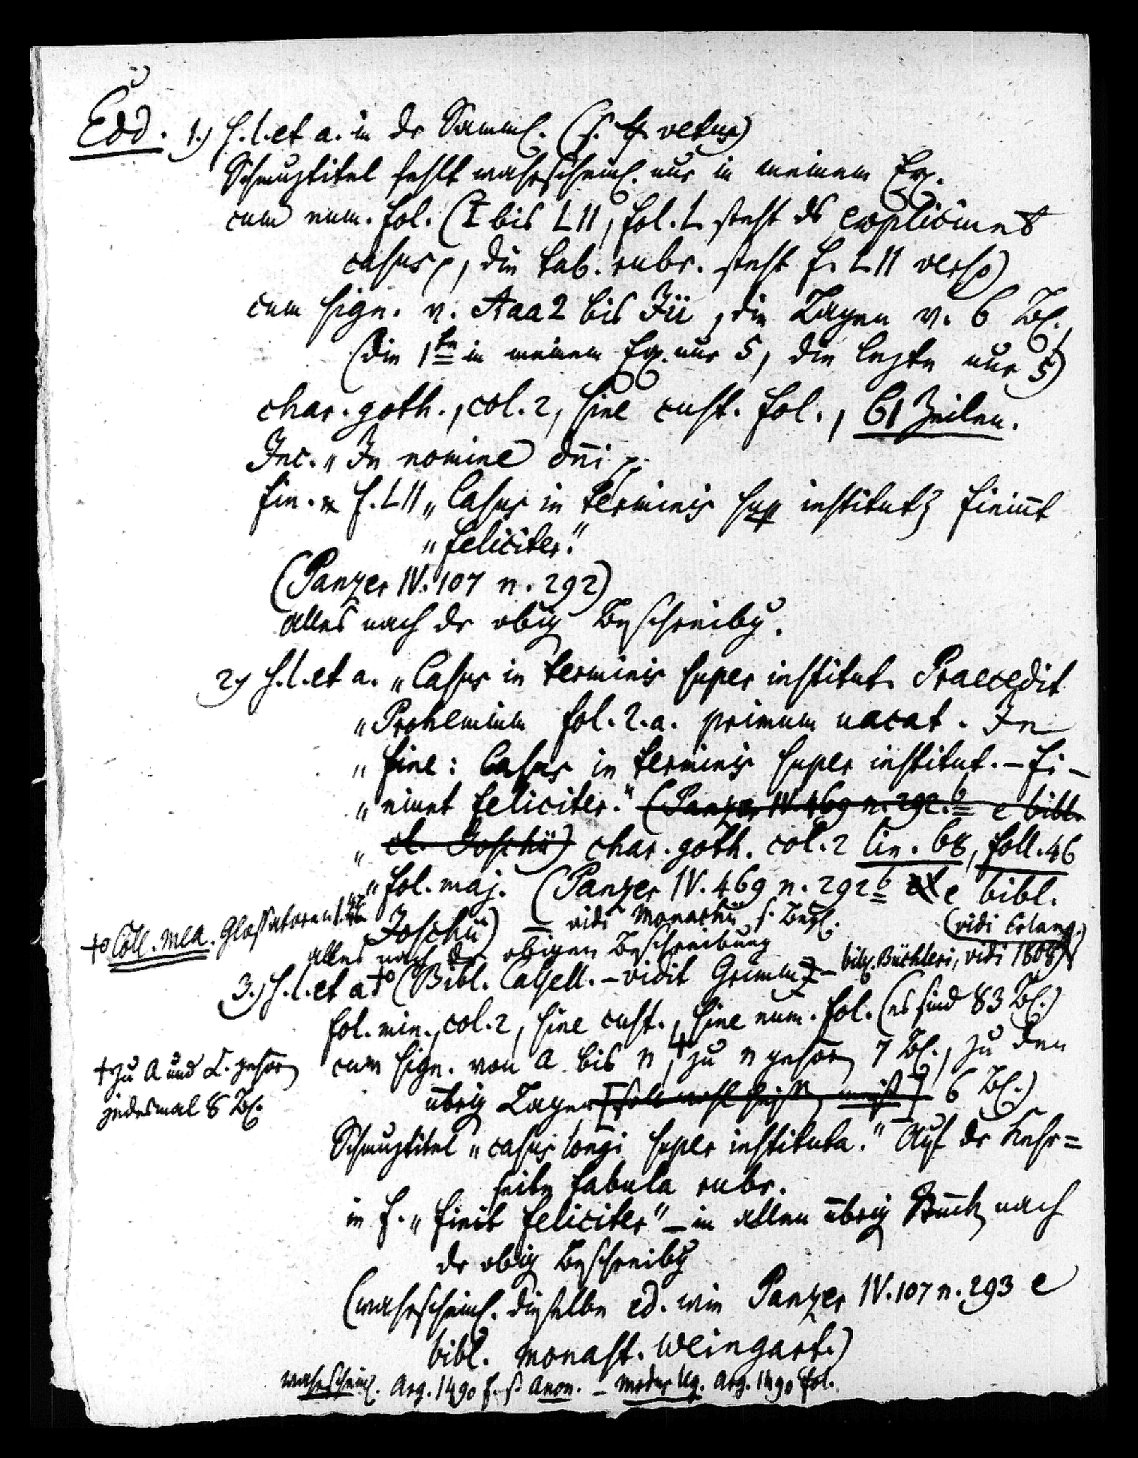 Edd. 1.) s.l. et a. in dr Samml. (s. ff vetus)
Schmuztitel fehlt wahrscheinl. nur in meinem Ex.
cum num. fol. (I bis LII, fol. L steht ds expliciunt
casus, die tab. rubr. steht f. LII verso)
cum sign. v. Aaa2 bis Iii, die Lagen v. 6 Bl.,
(die 1te in meinem Ex. nur 5, die lezte nur 5)
char. goth., col. 2, sine cust. fol., 61 Zeilen.
Inc. „In nomine dni
fin. f. LII „Casus in terminis sup institut finiut
„feliciter."
(Panzer IV. 107 n. 292)
alles nach dr obig Beschreibg.
2.) s.l. et a. „Casus in terminis super institut. Praecedit
„Prohemium fol. 2.a. primum vacat. In
„fine: Casus in terminis super institut. – fi–
„niunt feliciter." (Panzer IV. 469 n. 292.b e bibl.
„ cl. Joschii) char. goth. col. 2 lin. 68, foll. 46
„fol. maj. (Panzer IV. 469 n. 292b e bibl.
Joschii) – vidi Monachii s. Beyl.
(vidi Erlang.)
alles nach dr obigen Beschreibung
+o Coll. mea. Glossatoren
3.) s.l. et a +o (Bibl. Cassell. – vidit Grimm) – bibl. Büchleri, vidi 1808)
fol. min., col. 2, sine cust., sine num. fol. (es sind 83 Bl.)
cum sign. von a bis n, + zu n gehören 7 Bl., zu den
übrig Lagen 6 Bl.)
+ zu A und L gehören
jedesmal 8 Bl.
Schmuztitel „casus longi super instituta." Auf dr Kehr=
seite tabula rubr.
in f. „finit feliciter" – in allen übrig Stücken nach
dr obig Beschreibg
(wahrscheinl. dieselbe ed. wie Panzer IV. 107 n. 293 e
bibl. monast. Weingart.)
wahrscheinl. Arg. 1490 f. s. Anon. – modus leg. Arg. 1490 fol.